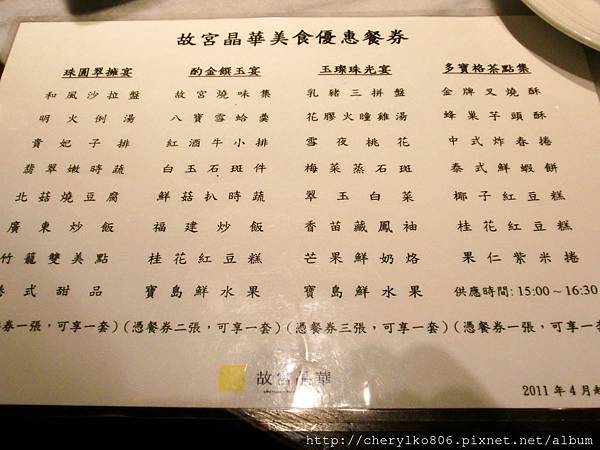 故宮晶華美食優惠餐券
珠圍翠擁宴
和風沙拉盤
明火例湯
貴妃子排
翡翠嫩時蔬
北菇燒豆腐
廣東炒飯
竹籠雙美點
港式甜品
券一張，可享一套)
酌金饌玉宴
故宮燒味集
八寶雪蛤羹
紅酒牛小排
白玉石斑件
鮮菇扒時蔬
福建炒飯
桂花紅豆糕
寶島鮮水果
(憑餐券二張，可享一套)
玉璨珠光宴
乳豬三拼盤
花膠火瞳雞湯
雪夜桃花
梅菜蒸石斑
翠玉白菜
香苗藏鳳袖
芒果鮮奶烙
寶島鮮水果
(憑餐券三張，可享一套)
多寶格茶點集
金牌叉燒酥
蜂巢芋頭酥
中式炸春捲
泰式鮮蝦餅
椰子紅豆糕
桂花紅豆糕
果仁紫米捲
供應時間: 15:00~16:30
(憑餐券一張，可享一
故宮晶華
2011 年 4 月
http://cherylko806.pixnet.net/album